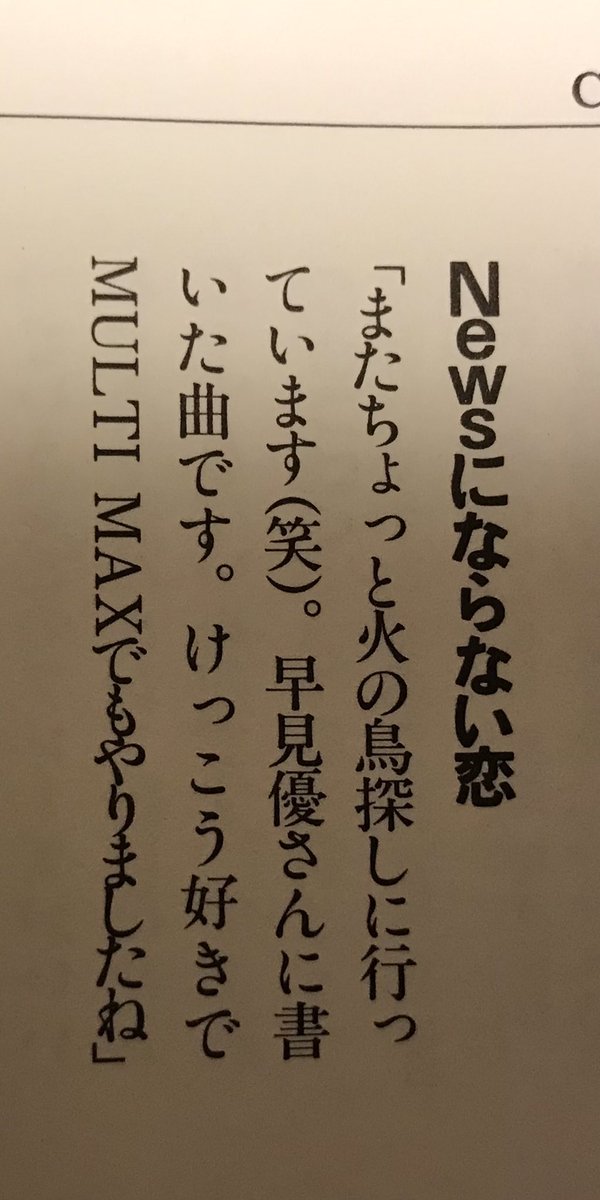 Newsにならない恋
「またちょっと火の鳥探しに行っ
ています(笑)。早見優さんに書
いた曲です。けっこう好きで
MULTI MAXでもやりましたね」